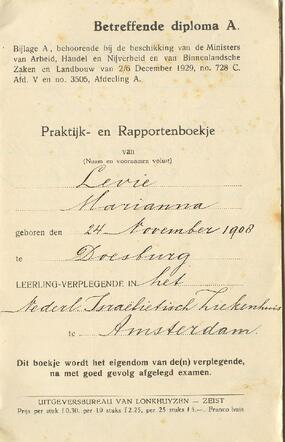 Betreffende diploma A.
Bijlage A, behoorende bij de beschikking van de Ministers
van Arbeid, Handel en Nijverheid en van Binnenlandsche
Zaken en Landbouw van 2/6 December 1929, no. 728 C.
Afd. V en no. 3505, Afdeeling A.
Praktijk- en Rapportenboekje
van
(Naam en voornamen voluit)
Levie
Marianna
geboren den 24 November 1908
te Doesburg
LEERLING-VERPLEGENDE IN het
Nederl. Israëlietisch Ziekenhuis
te Amsterdam.
Dit boekje wordt het eigendom van de(n) verplegende,
na met goed gevolg afgelegd examen.
UITGEVERSBUREAU VAN LONKHUYZEN — ZEIST
Prijs per stuk f 0.30. per 10 stuks f 2.25, per 25 stuks f 5.—. Franco huis